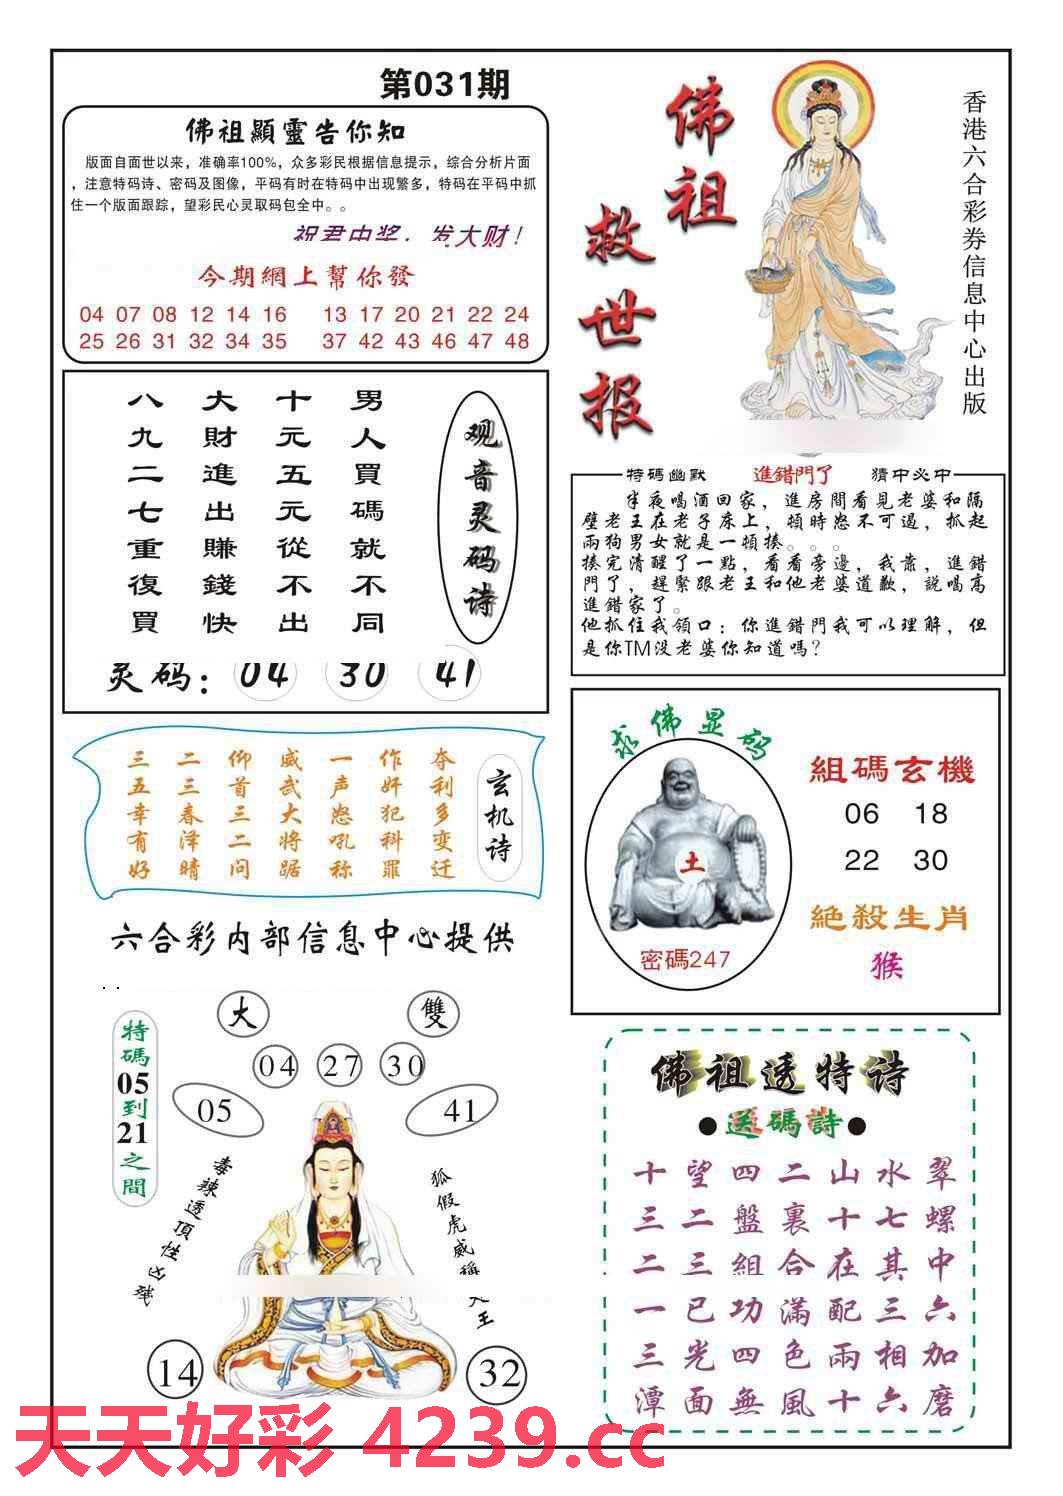 第031期
佛祖顯靈告你知
版面自面世以来，准确率100%，众多彩民根据信息提示，综合分析片面
，注意特码诗、密码及图像，平码有时在特码中出现繁多，特码在平码中抓
住一个版面跟踪，望彩民心灵取码包全中。。
祝君中奖，发大财！
今期網上幫你發
04 07 08 12 14 16 13 17 20 21 22 24
25 26 31 32 34 35 37 42 43 46 47 48
佛祖
救世报
香港六合彩券信息中心出版
观音灵码诗
男人買碼就不同
十元五元從不出
大財進出賺錢快
八九二七重復買
灵码：04 30 41
特碼幽默 進錯門了 猜中必中
半夜喝酒回家，進房間看見老婆和隔
壁老王在老子床上，頓時怒不可遏，抓起
兩狗男女就是一頓揍。。。
揍完清醒了一點，看看旁邊，我靠，進錯
門了，趕緊跟老王和他老婆道歉，説喝高
進錯家了。
他抓住我領口：你進錯門我可以理解，但
是你TM没老婆你知道嗎？
玄机诗
夺利多变迁
作奸犯科罪
一声怒吼称
威武大将踞
仰首三二问
二三春泽晴
三五幸有好
求佛显码
土
密碼247
組碼玄機
06 18
22 30
絶殺生肖
猴
六合彩内部信息中心提供
大 雙
04 27 30
05 41
特碼05到21之間
毒辣透頂性凶残
狐假虎威稱
王
14 32
佛祖透特诗
●送碼詩●
十望四二山水翠
三二盤裏十七螺
二三組合在其中
一已功滿配三六
三光四色兩相加
潭面無風十六磨
天天好彩 4239.cc